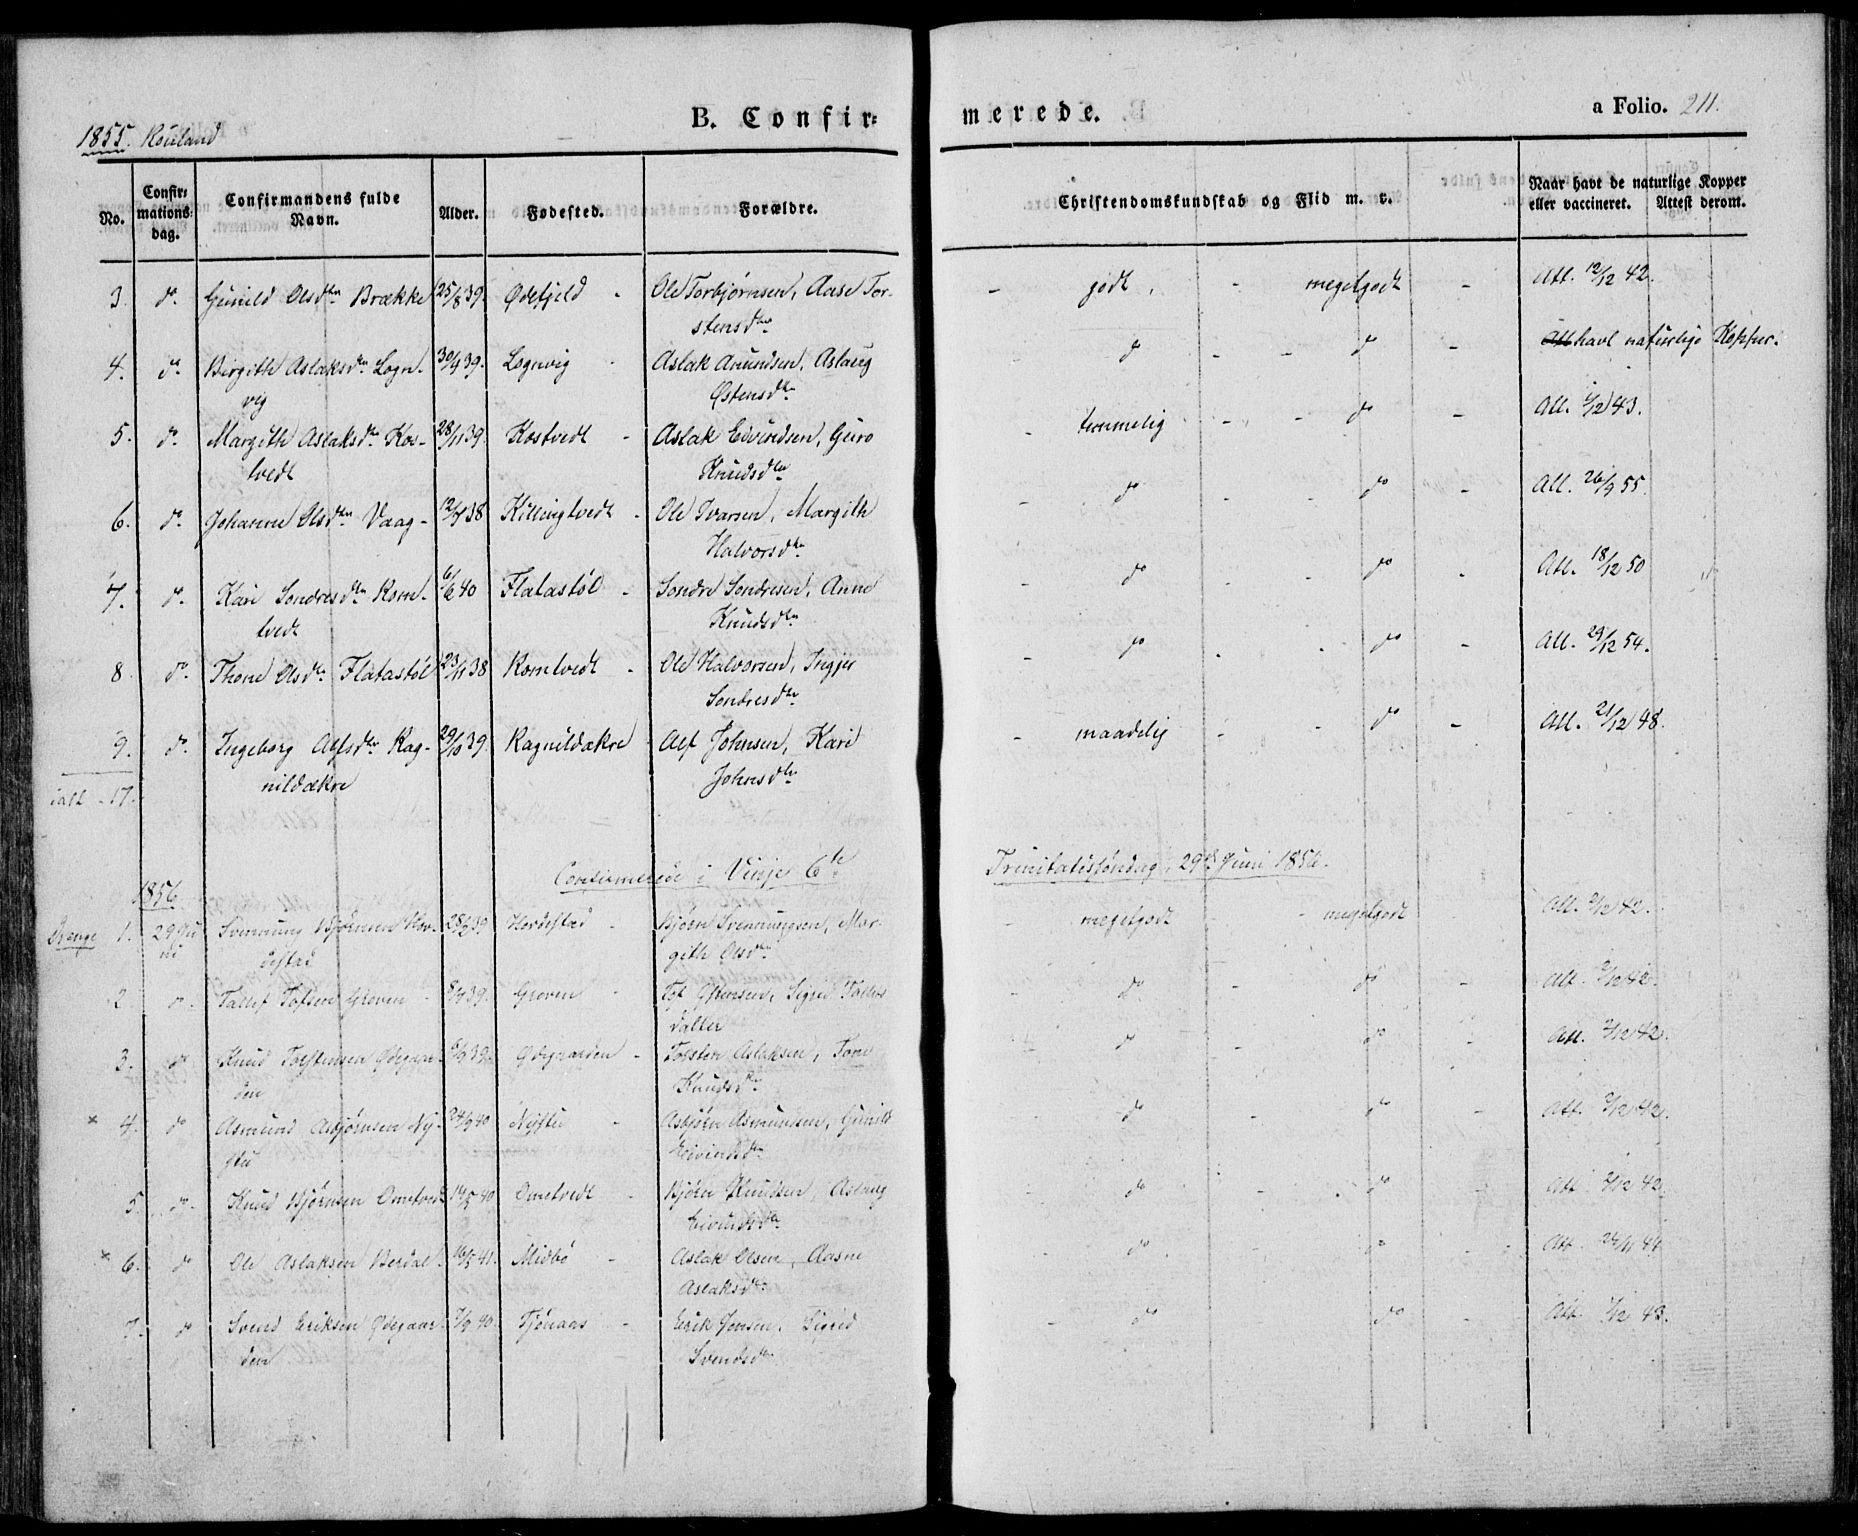 B. Confir= merede.
a Folio. 211.
1855. Rouland
No.
Confir=
mations=
dag.
Confirmandens fulde
Navn.
Alder.
Fødested.
Forældre.
Christendomskundskab og Flid m. v.
Naar havt de naturlige Kopper
eller vaccineret. Attest derom.
3. do. Gunild Olsdtr Brække 25/8 39. Ødefjeld - Ole Torbjørnsen, Aase Tor-
stensdtr
- godt, - megetgodt - Att. 12/12 42.
4. do. Birgith Aslaksdtr Logn- 30/9 39. Lognvig - Aslak Amundsen, Aslaug
vig Østensdtr
do - - do - havt naturlige Kopper.
5. do. Margith Aslaksdtr Kos- 28/11 39. Kostvedt - Aslak Eivindsen, Guro
tvedt Knudsdtr
- temmelig - - do - Att. /12 43.
6. do. Johanne Olsdtr Vaag- 12/7 38 Killingtvedt - Ole Ivarsen, Margith
Halvorsdtr
- do - do - Att. 26/9 55.
7. do. Kari Sondresdtr Rom- 6/6 40 Flatastøl - Sondre Sondresen, Anne
tvedt Knudsdtr
- do - - do - Att. 18/12 50
8 do. Thone Olsdtr Flatastøl 23/11 38 Romtvedt - Ole Halvorsen, Ingjer
Sondresdtr
- do - - do - Att. 29/12 54.
9. do. Ingeborg Alfsdtr Rag- 29/10 39. Ragnildækre Alf Johnsen, Kari
nildækre Johnsdtr
- maadelig - - do - Att. 21/12 48.
ialt - 17.
Confirmerede i Vinje 6te Trinitatissøndag, 29de Juni 1856.
1856
Drenge 1. 29 Ju Svenning Bjørnsen Hor- 28/2 39. Hordestad - Bjørn Svenningsen, Mar-
ni destad gith Olsdtr
- megetgodt - megetgodt Att. 2/12 42.
2. do. Tallef Tofsen Groven - 8/7 39. Groven - Tof Sigrid Tallefs
datter
- do - do - Att. 2/12 42.
3. do Knud Torstensen Ødegaar- 6/9 39. Ødegaarden - Torsten Aslaksen, Tone
den Knudsdtr
do - do - Att. 2/12 42.
x 4. do Asmund Asbjørnsen Ny- 24/2 40 Nystu - Asbjørn Asmundsen, Gunild
stu Eivindsdtr
do - do - Att. 2/12 42.
5. do. Knud Bjørnsen Ometvedt 19/5 40 Ometvedt - Bjørn Knudsen, Aslaug
Eivindsdtr
- do - do - Att. 2/12 42.
x 6. do Ole Aslaksen Berdal. 16/5 41. Midbø - Aslak Olsen, Aasne
Aslaksdtr
- do - do - Att.
7. do Svend Eriksen Ødegaar- 7/9 40 Tjønaas - Erik Jonsen, Sigrid
den Svendsdtr
- do - do - Att. /12 43.